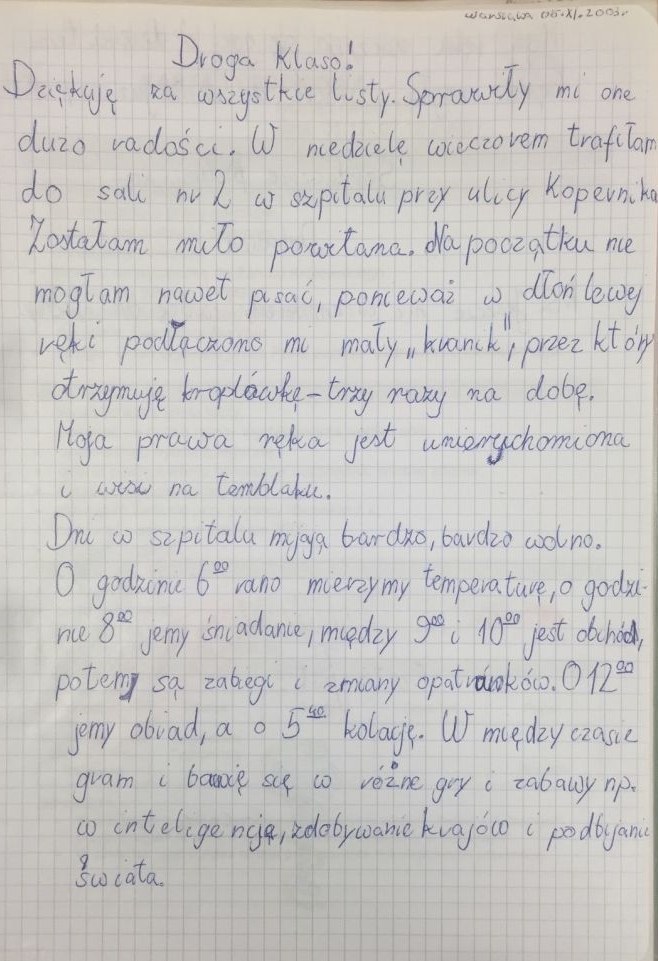 Warszawa 06.XI.2003r
Droga Klaso!
Dziękuję za wszystkie listy. Sprawiły mi one
dużo radości. W niedzielę wieczorem trafiłam
do sali nr 2 w szpitalu przy ulicy Kopernika
Zostałam miło powitana. Na początku nie
mogłam nawet pisać, ponieważ w dłoń lewej
ręki podłączono mi mały „kranik", przez który
otrzymuję kroplówkę – trzy razy na dobę.
Moja prawa ręka jest unieruchomiona
i wisi na temblaku.
Dni w szpitalu mijają bardzo, bardzo wolno.
O godzinie 6⁰⁰ rano mierzymy temperaturę, o godzi-
nie 8⁰⁰ jemy śniadanie, między 9⁰⁰ i 10⁰⁰ jest obchód,
potem są zabiegi i zmiany opatrunków. O 12⁰⁰
jemy obiad, a o 5⁴⁰ kolację. W między czasie
gram i bawię się w różne gry i zabawy np.
w inteligencję, zdobywanie krajów i podbijanie
świata.